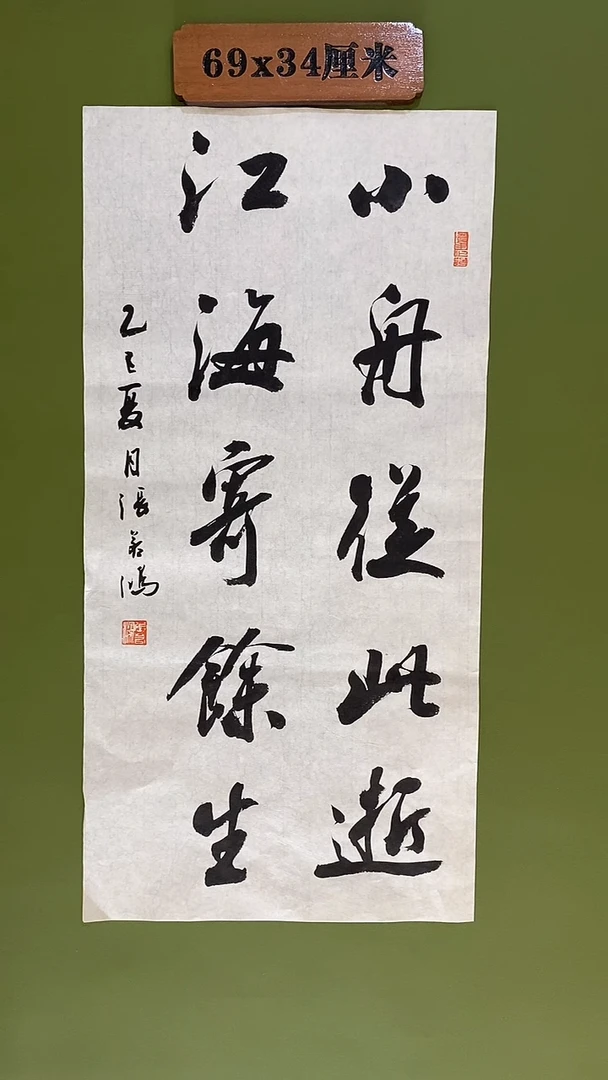 69x34厘米
小舟從此逝
江海寄餘生
乙巳夏月張若鴻